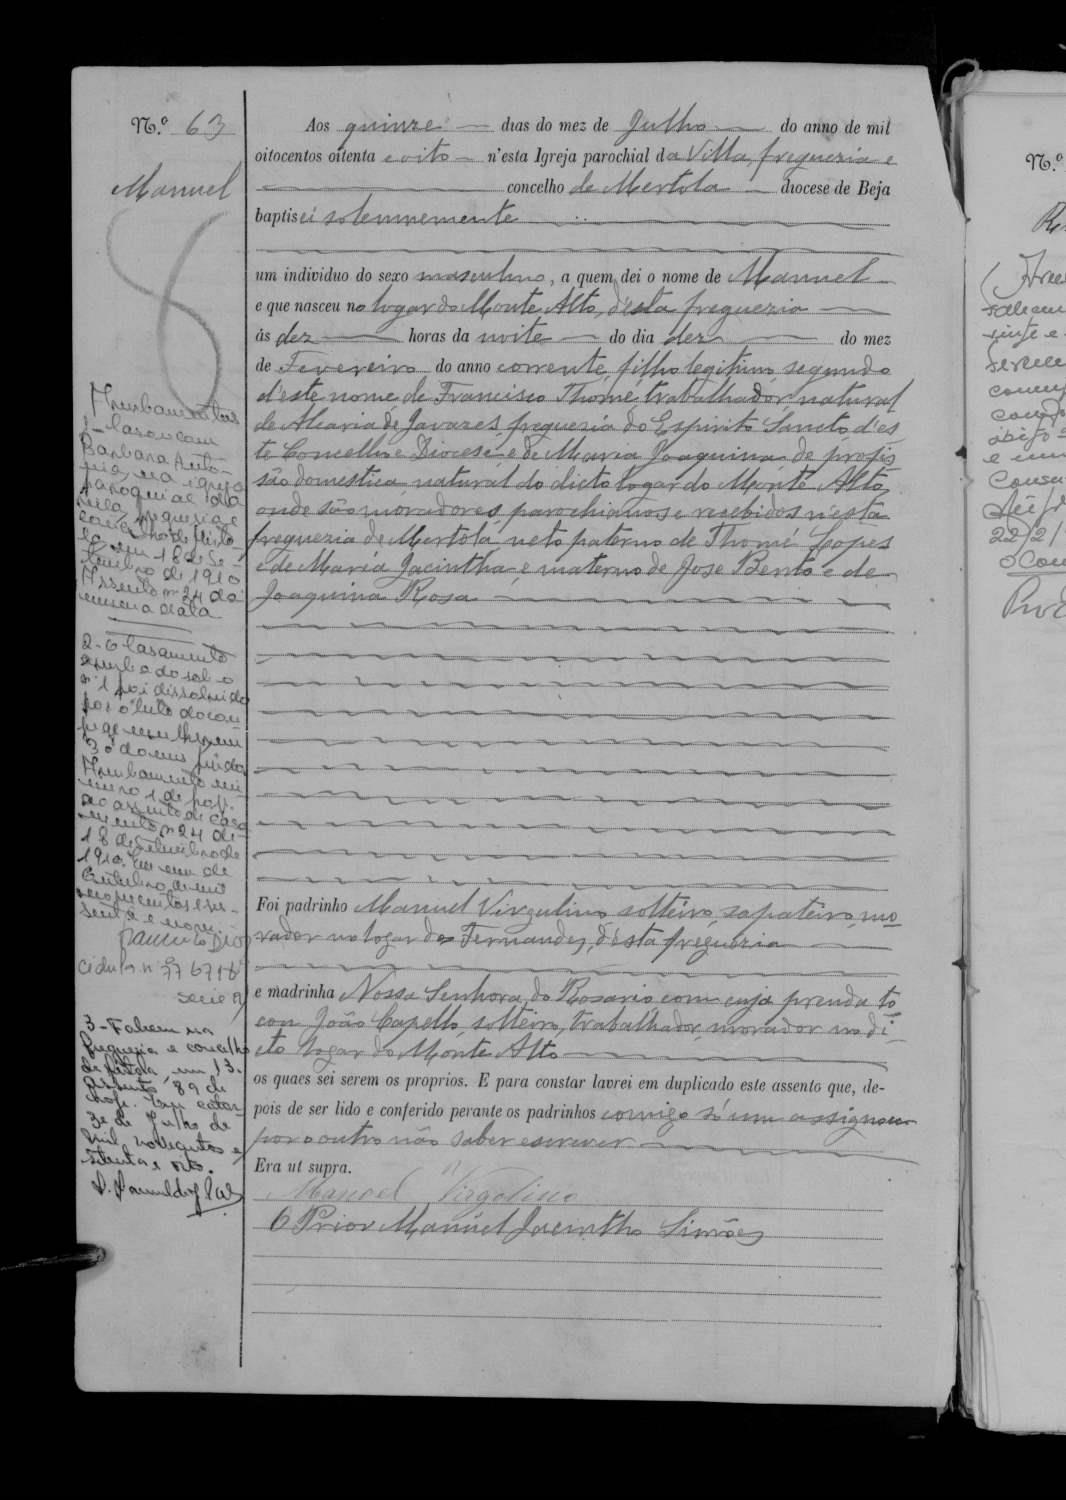 N.º 63
Manuel
Aos quinze dias do mez de Julho do anno de mil
oitocentos oitenta e oito n'esta Igreja parochial da Villa, freguezia e
concelho de Mertola diocese de Beja
baptisei solemnemente
um individuo do sexo masculino, a quem dei o nome de Manuel
e que nasceu no logar do Monte Alto, d'esta freguezia
ás dez horas da noite do dia dez do mez
de Fevereiro do anno corrente, filho legitimo segundo
d'este nome, de Francisco Thomé trabalhador natural
de Alcaria de Javazes freguezia do Espirito Sancto d'es
te Concelho e Diocese e de Maria Joaquina de profis
são domestica natural do dicto logar do Monte Alto,
onde são moradores, parochianos e recebidos n'esta
freguezia de Mertola neto paterno de Thomé Lopes
e de Maria Jacintha, e materno de José Bento e de
Joaquina Rosa
Foi padrinho Manuel Virgulino, solteiro, sapateiro, mo
rador no logar dos Fernandes, d'esta freguezia
e madrinha Nossa Senhora do Rosario com cuja prenda to
cou João Capello, solteiro, trabalhador, morador no di
cto logar do Monte Alto
os quaes sei serem os proprios. E para constar lavrei em duplicado este assento que, de-
pois de ser lido e conferido perante os padrinhos comigo só um assignou
por o outro não saber escrever
Era ut supra.
Manoel Virgolino
O Prior Manuel Jacintho Simões
Averbamentos
1- Casou com
Barbara Anto-
nia, na igreja
paroquial da
vila, freguesia e
concelho de Mérto-
la em 18 de Se-
tembro de 1910
Assento nº 24 da
mesma data
2- O casamento
averbado sob o
nº 1 foi dissolvido
por óbito do con-
juge mulher em
30 do mês findo.
Averbamento nú-
mero 1 de hoje.
ao assento de casa
mento nº 24 de
18 de Setembro de
1910. Em um de
Outubro de mil
novecentos e ses-
senta e nove.
Cédula nº 776718
serie A
3- Faleceu na
freguesia e concelho
de Mértola em 13.
Assento 89 de
hoje. Em cator-
ze de Julho de
mil novecentos e
setenta e oito.
N.º